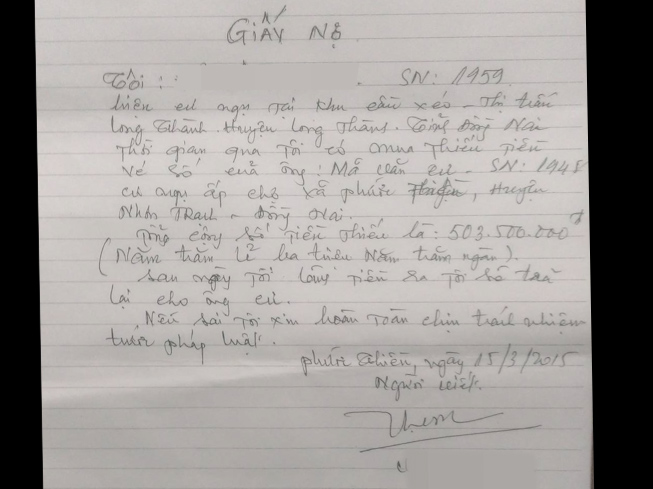 GIẤY NỢ
Tôi : SN: 1959
hiện cư ngụ tại khu cầu xéo - Thị trấn
Long Thành. Huyện Long Thành. Tỉnh Đồng Nai
Thời gian qua Tôi có mua Thiếu tiền
vé số của ông: Mã Văn Cư - SN: 1948
cư ngụ ấp chợ xã phước Thiền, Huyện
Nhơn Trạch - Đồng Nai.
Tổng cộng số Tiền Thiếu là: 503.500.000đ
(Năm trăm lẻ ba triệu Năm trăm ngàn).
sau ngày Tôi Tiền ra Tôi sẽ trả
lại cho ông cư.
Nếu sai Tôi xin hoàn Toàn chịu trách nhiệm
trước pháp luật.
phước Thiền, ngày 15/3/2015
Người viết.